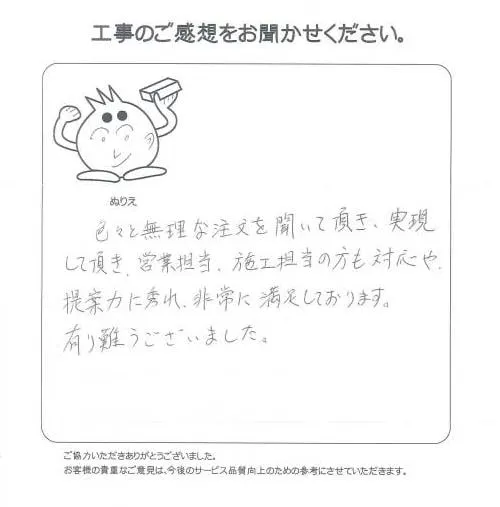 工事のご感想をお聞かせください。
ぬりえ
色々と無理な注文を聞いて頂き、実現
して頂き、営業担当、施工担当の方も対応や、
提案力に秀れ、非常に満足しております。
有り難うございました。
ご協力いただきありがとうございました。
お客様の貴重なご意見は、今後のサービス品質向上のための参考にさせていただきます。